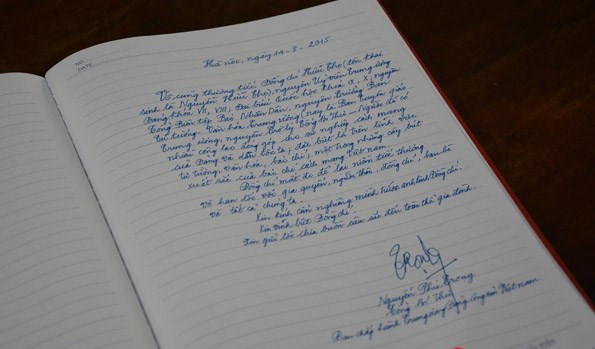 NO.
DATE
Hà nội, ngày 14-8-2015
Vô cùng thương tiếc Đồng chí Hữu Thọ (tên khai
sinh là Nguyễn Hữu Thọ), nguyên Uỷ viên Trung ương
Đảng khóa VII, VIII; Đại biểu Quốc hội khóa IX, X; nguyên
Tổng Biên tập Báo Nhân Dân, nguyên Trưởng Ban
Tư tưởng - Văn hóa Trung ương (nay là Ban Tuyên giáo
Trung ương), nguyên Trợ lý Tổng Bí thư - Người đã có
nhiều công lao đóng góp cho sự nghiệp cách mạng
của Đảng và dân tộc ta, đặc biệt là trên lĩnh vực
tư tưởng, văn hóa, báo chí; một trong những cây bút
xuất sắc của báo chí cách mạng Việt Nam.
Đồng chí mất đi để lại niềm tiếc thương
vô hạn đối với gia quyến, người thân, đồng chí, bạn bè
và tất cả chúng ta.
Xin kính cẩn nghiêng mình trước anh linh Đồng chí.
Xin vĩnh biệt Đồng chí.
Xin gửi lời chia buồn sâu sắc đến toàn thể gia đình.
Trọng
Nguyễn Phú Trọng
Tổng Bí Thư
Ban chấp hành Trung ương Đảng Cộng sản Việt Nam